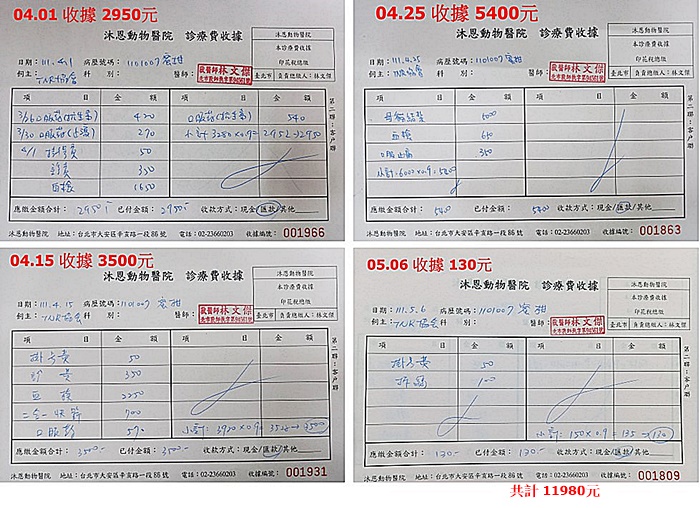 04.01 收據 2950元
沐恩動物醫院 診療費收據
沐恩動物醫院
本診療費收據
印花稅總繳
臺北市 負責總繳人:林文傑
日期:111.4.1 病歷號碼:1101007 蜜柑
飼主:TNR協會 科別: 醫師:
獸醫師 林文傑
項目 金額 項目 金額
3/26口服藥(抗生素) 420 口服藥(抗生素) 540
3/30口服藥 270 小計3280×0.9=2952→2950
4/1 掛號費 50
診費 350
血檢 1650
應繳金額合計: 2950 已付金額: 2950 收款方式:現金/匯款/其他
沐恩動物醫院 地址:台北市大安區辛亥路一段86號 電話:02-23660203 收據編號: 001966
04.25 收據 5400元
沐恩動物醫院 診療費收據
沐恩動物醫院
本診療費收據
印花稅總繳
臺北市 負責總繳人:林文傑
日期:111.4.25 病歷號碼:1101007 蜜柑
飼主:TNR協會 科別: 醫師:
獸醫師 林文傑
項目 金額 項目 金額
5000
血檢 650
口服止痛 350
小計:6000×0.9=5400
應繳金額合計: 5400 已付金額: 5400 收款方式:現金/匯款/其他
沐恩動物醫院 地址:台北市大安區辛亥路一段86號 電話:02-23660203 收據編號: 001863
04.15 收據 3500元
沐恩動物醫院 診療費收據
沐恩動物醫院
本診療費收據
印花稅總繳
臺北市 負責總繳人:林文傑
日期:111.4.15 病歷號碼:1101007 蜜柑
飼主:TNR協會 科別: 醫師:
獸醫師 林文傑
項目 金額 項目 金額
掛號費 50
診費 350
血檢 2250
二合一快篩 700
口服藥 570 小計:3920×0.9=3528→3500
應繳金額合計: 3500- 已付金額: 3500- 收款方式:現金/匯款/其他
沐恩動物醫院 地址:台北市大安區辛亥路一段86號 電話:02-23660203 收據編號: 001931
05.06 收據 130元
沐恩動物醫院 診療費收據
沐恩動物醫院
本診療費收據
印花稅總繳
臺北市 負責總繳人:林文傑
日期:111.5.6 病歷號碼:1101007 蜜柑
飼主:TNR協會 科別: 醫師:
獸醫師 林文傑
項目 金額 項目 金額
掛號費 50
拆線 100
小計:150×0.9=135→130
應繳金額合計: 130- 已付金額: 130- 收款方式:現金/匯款/其他
沐恩動物醫院 地址:台北市大安區辛亥路一段86號 電話:02-23660203 收據編號: 001809
共計 11980元